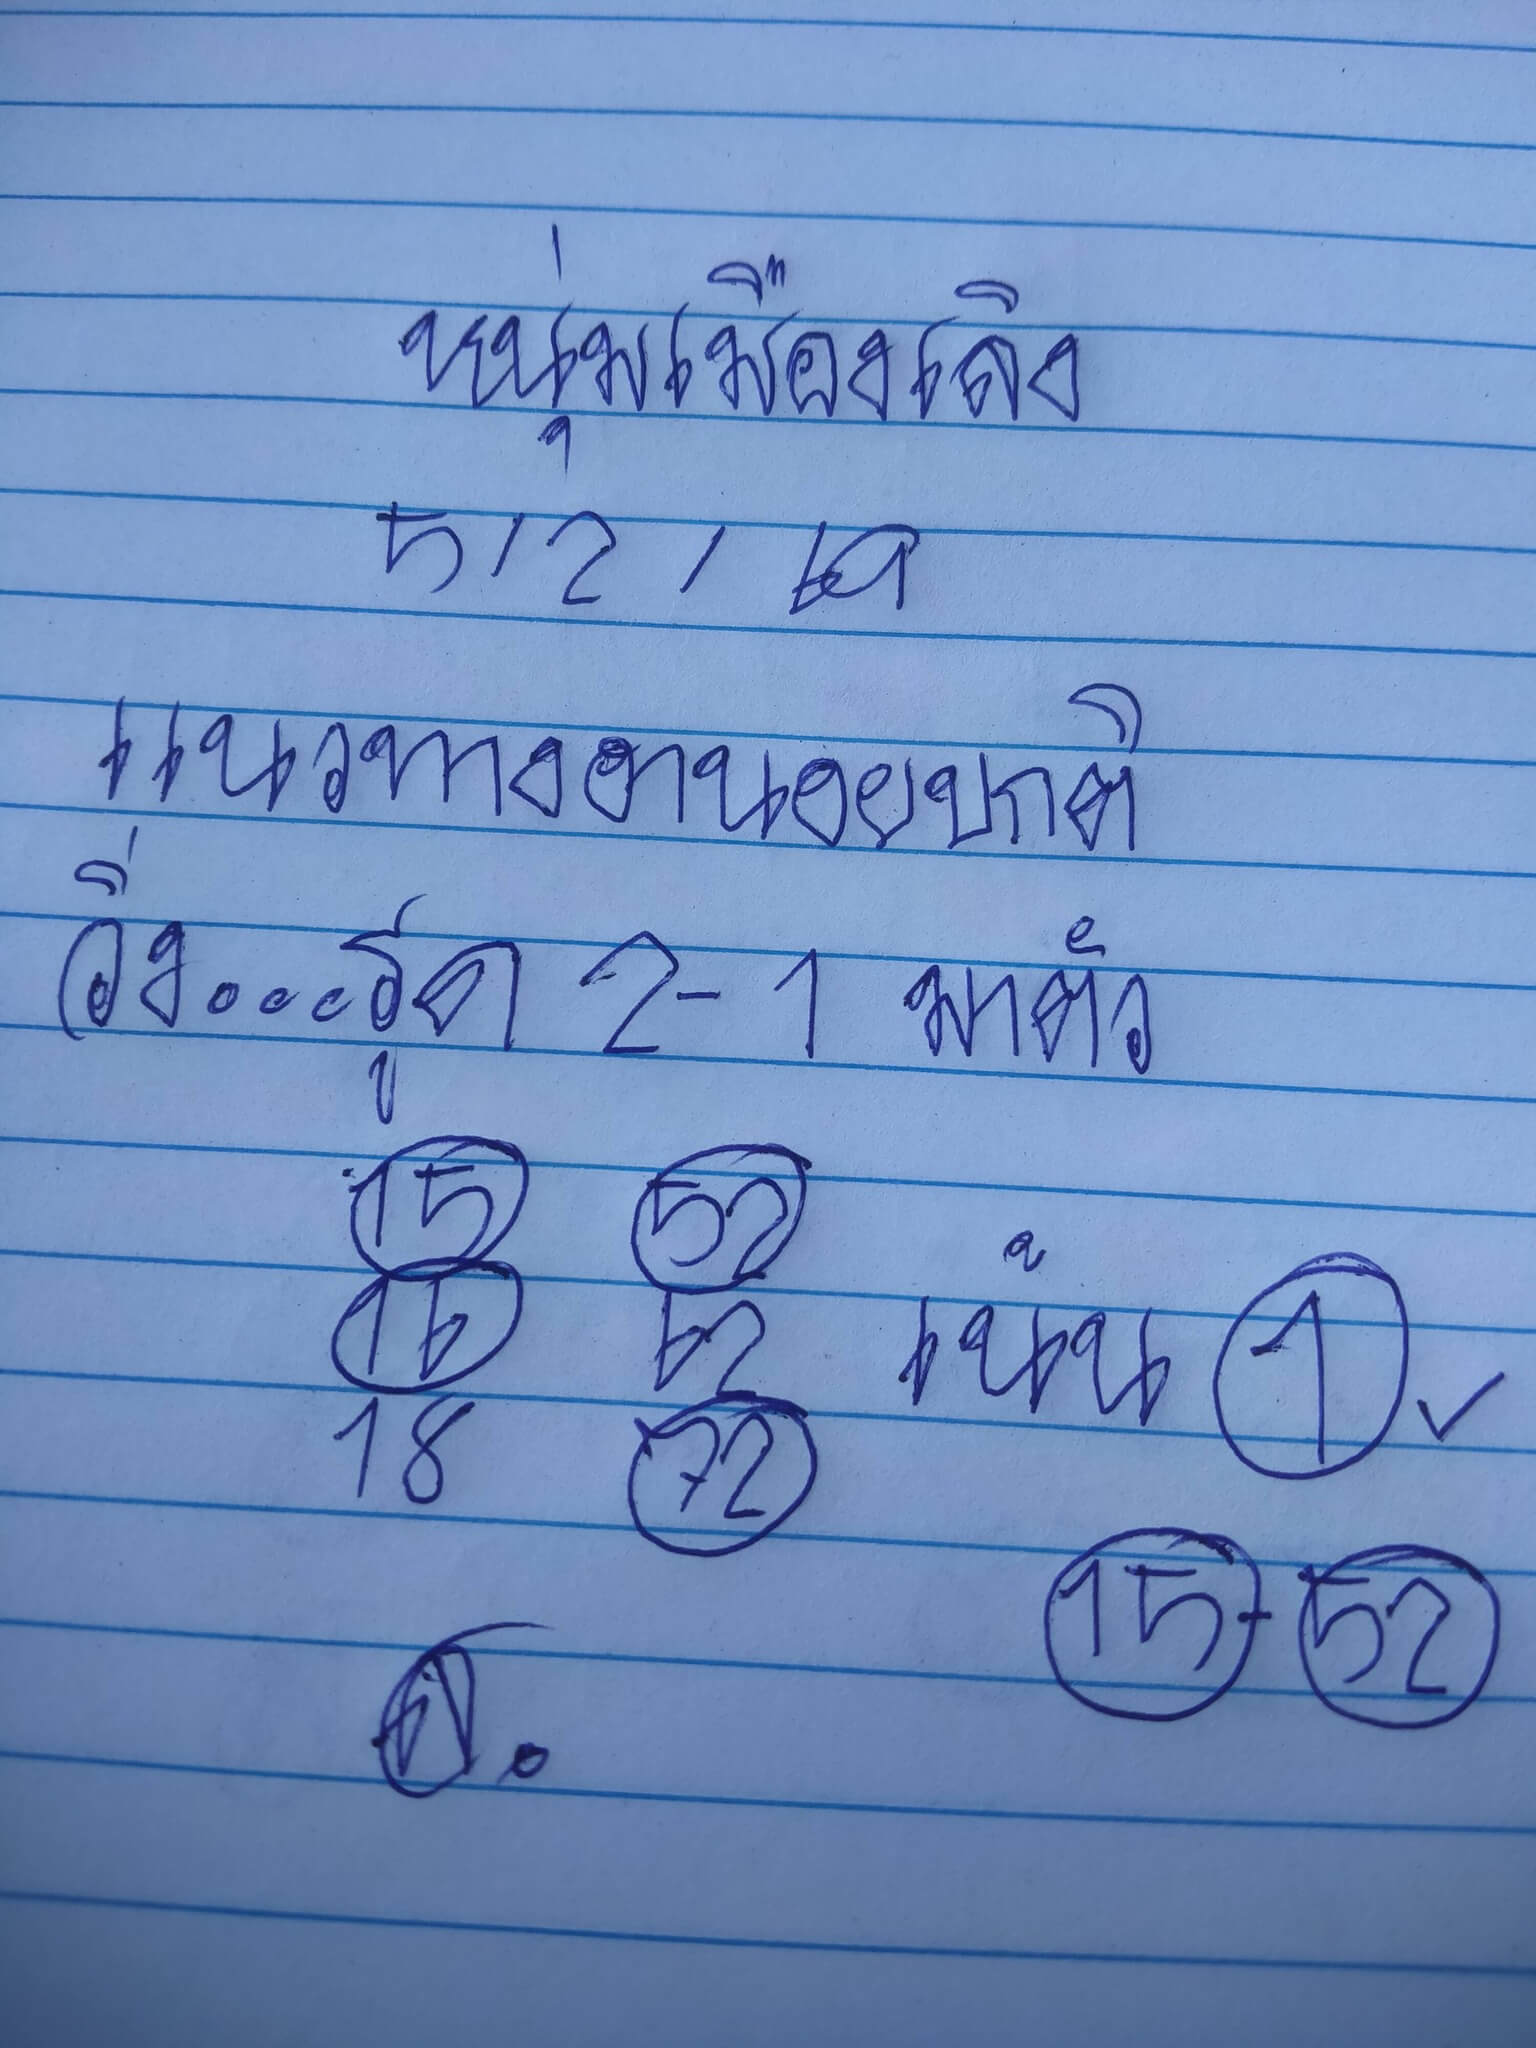 หนุ่มเมืองเลิง
5/2/69
แนวทางฮานอยปกติ
วิ่ง...รูด 2-1 มาตัว
15 52
16 62 เน้น 1
18 72
15-52